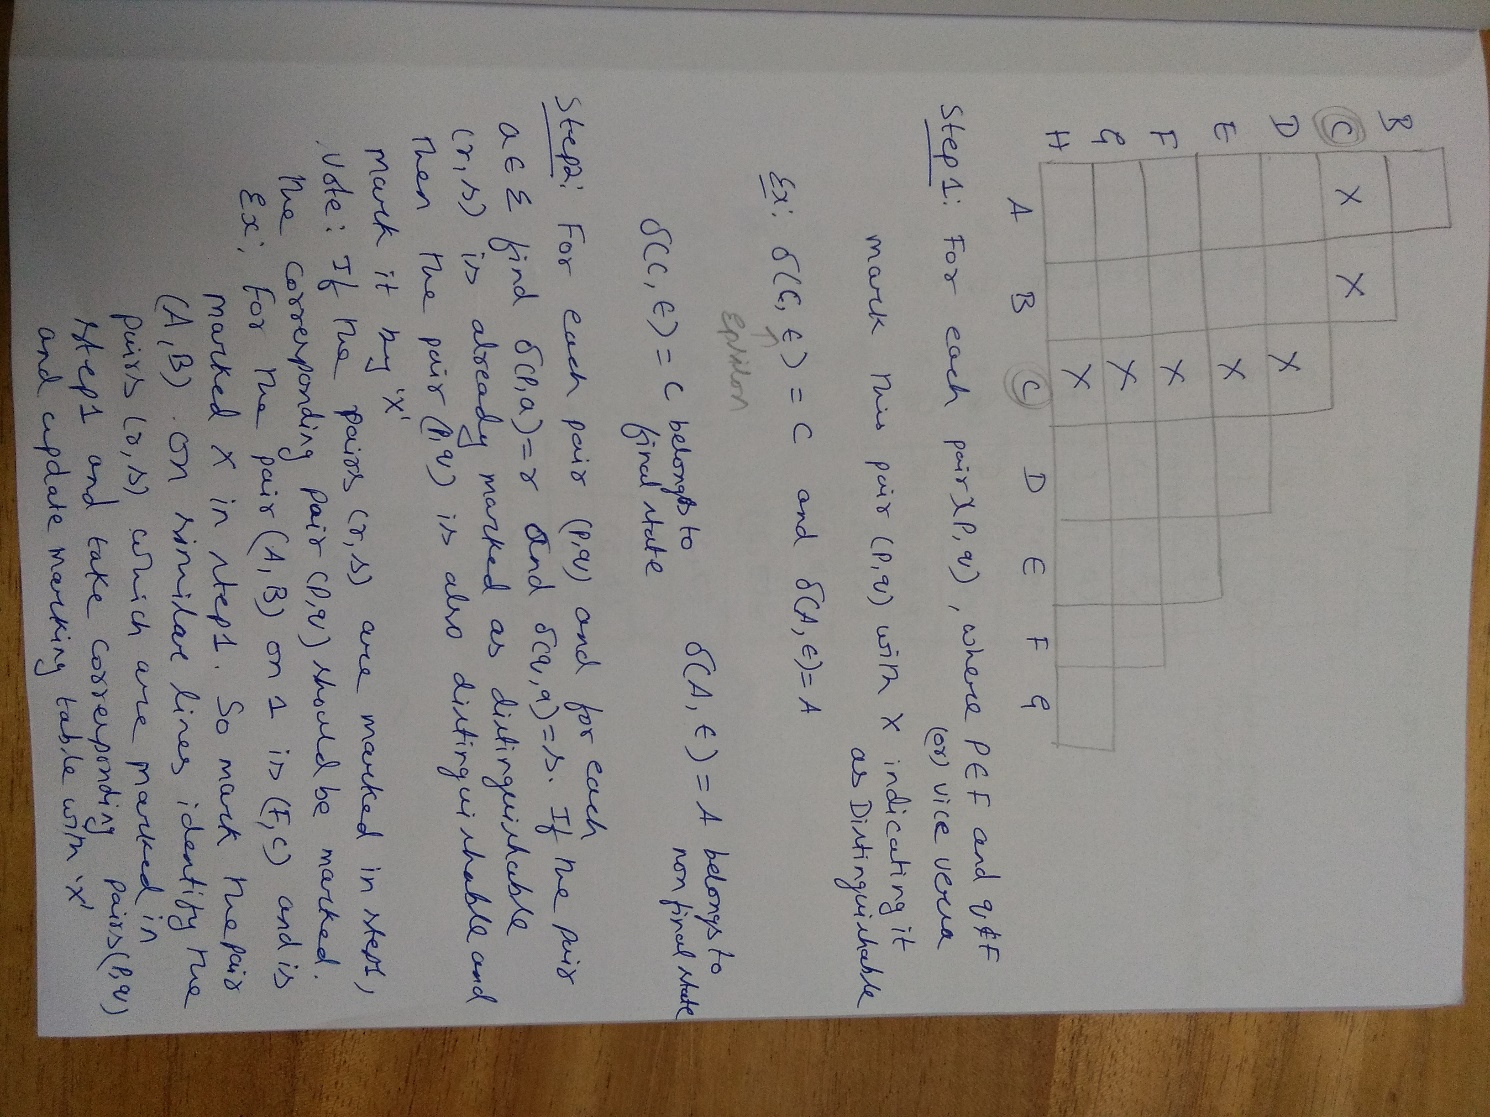 B
C X X
D X
E X
F X
G X
H X
A B C D E F G
Step1: For each pair (P,q), where P∈F and q∉F
(or) vice versa
mark this pair (P,q) with X indicating it
as Distinguishable
Ex: δ(C, ϵ) = C and δ(A, ϵ) = A
Epsilon
δ(C, ϵ) = C belongs to
final state
δ(A, ϵ) = A belongs to
non final state
Step2: For each pair (P,q) and for each
a ∈ Σ find δ(P,a)=r and δ(q,a)=s. If the pair
(r,s) is already marked as distinguishable
then the pair (P,q) is also distinguishable and
mark it by 'X'
Note: If the pairs (r,s) are marked in step1,
the corresponding pair (P,q) should be marked.
Ex: For the pair (A,B) on 1 is (F,C) and is
marked X in step1. So mark the pair
(A,B). On similar lines identify the
pairs (r,s) which are marked in
step1 and take corresponding pairs (P,q)
and update marking table with 'X'